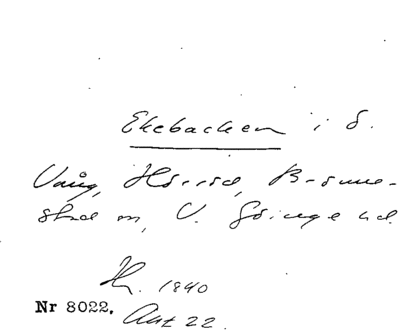 Ekebacken i S.
Vång, Hörröd, Brönne-
stad sn, V. Göinge hd.
H. 1840
Nr 8022. Aut 22